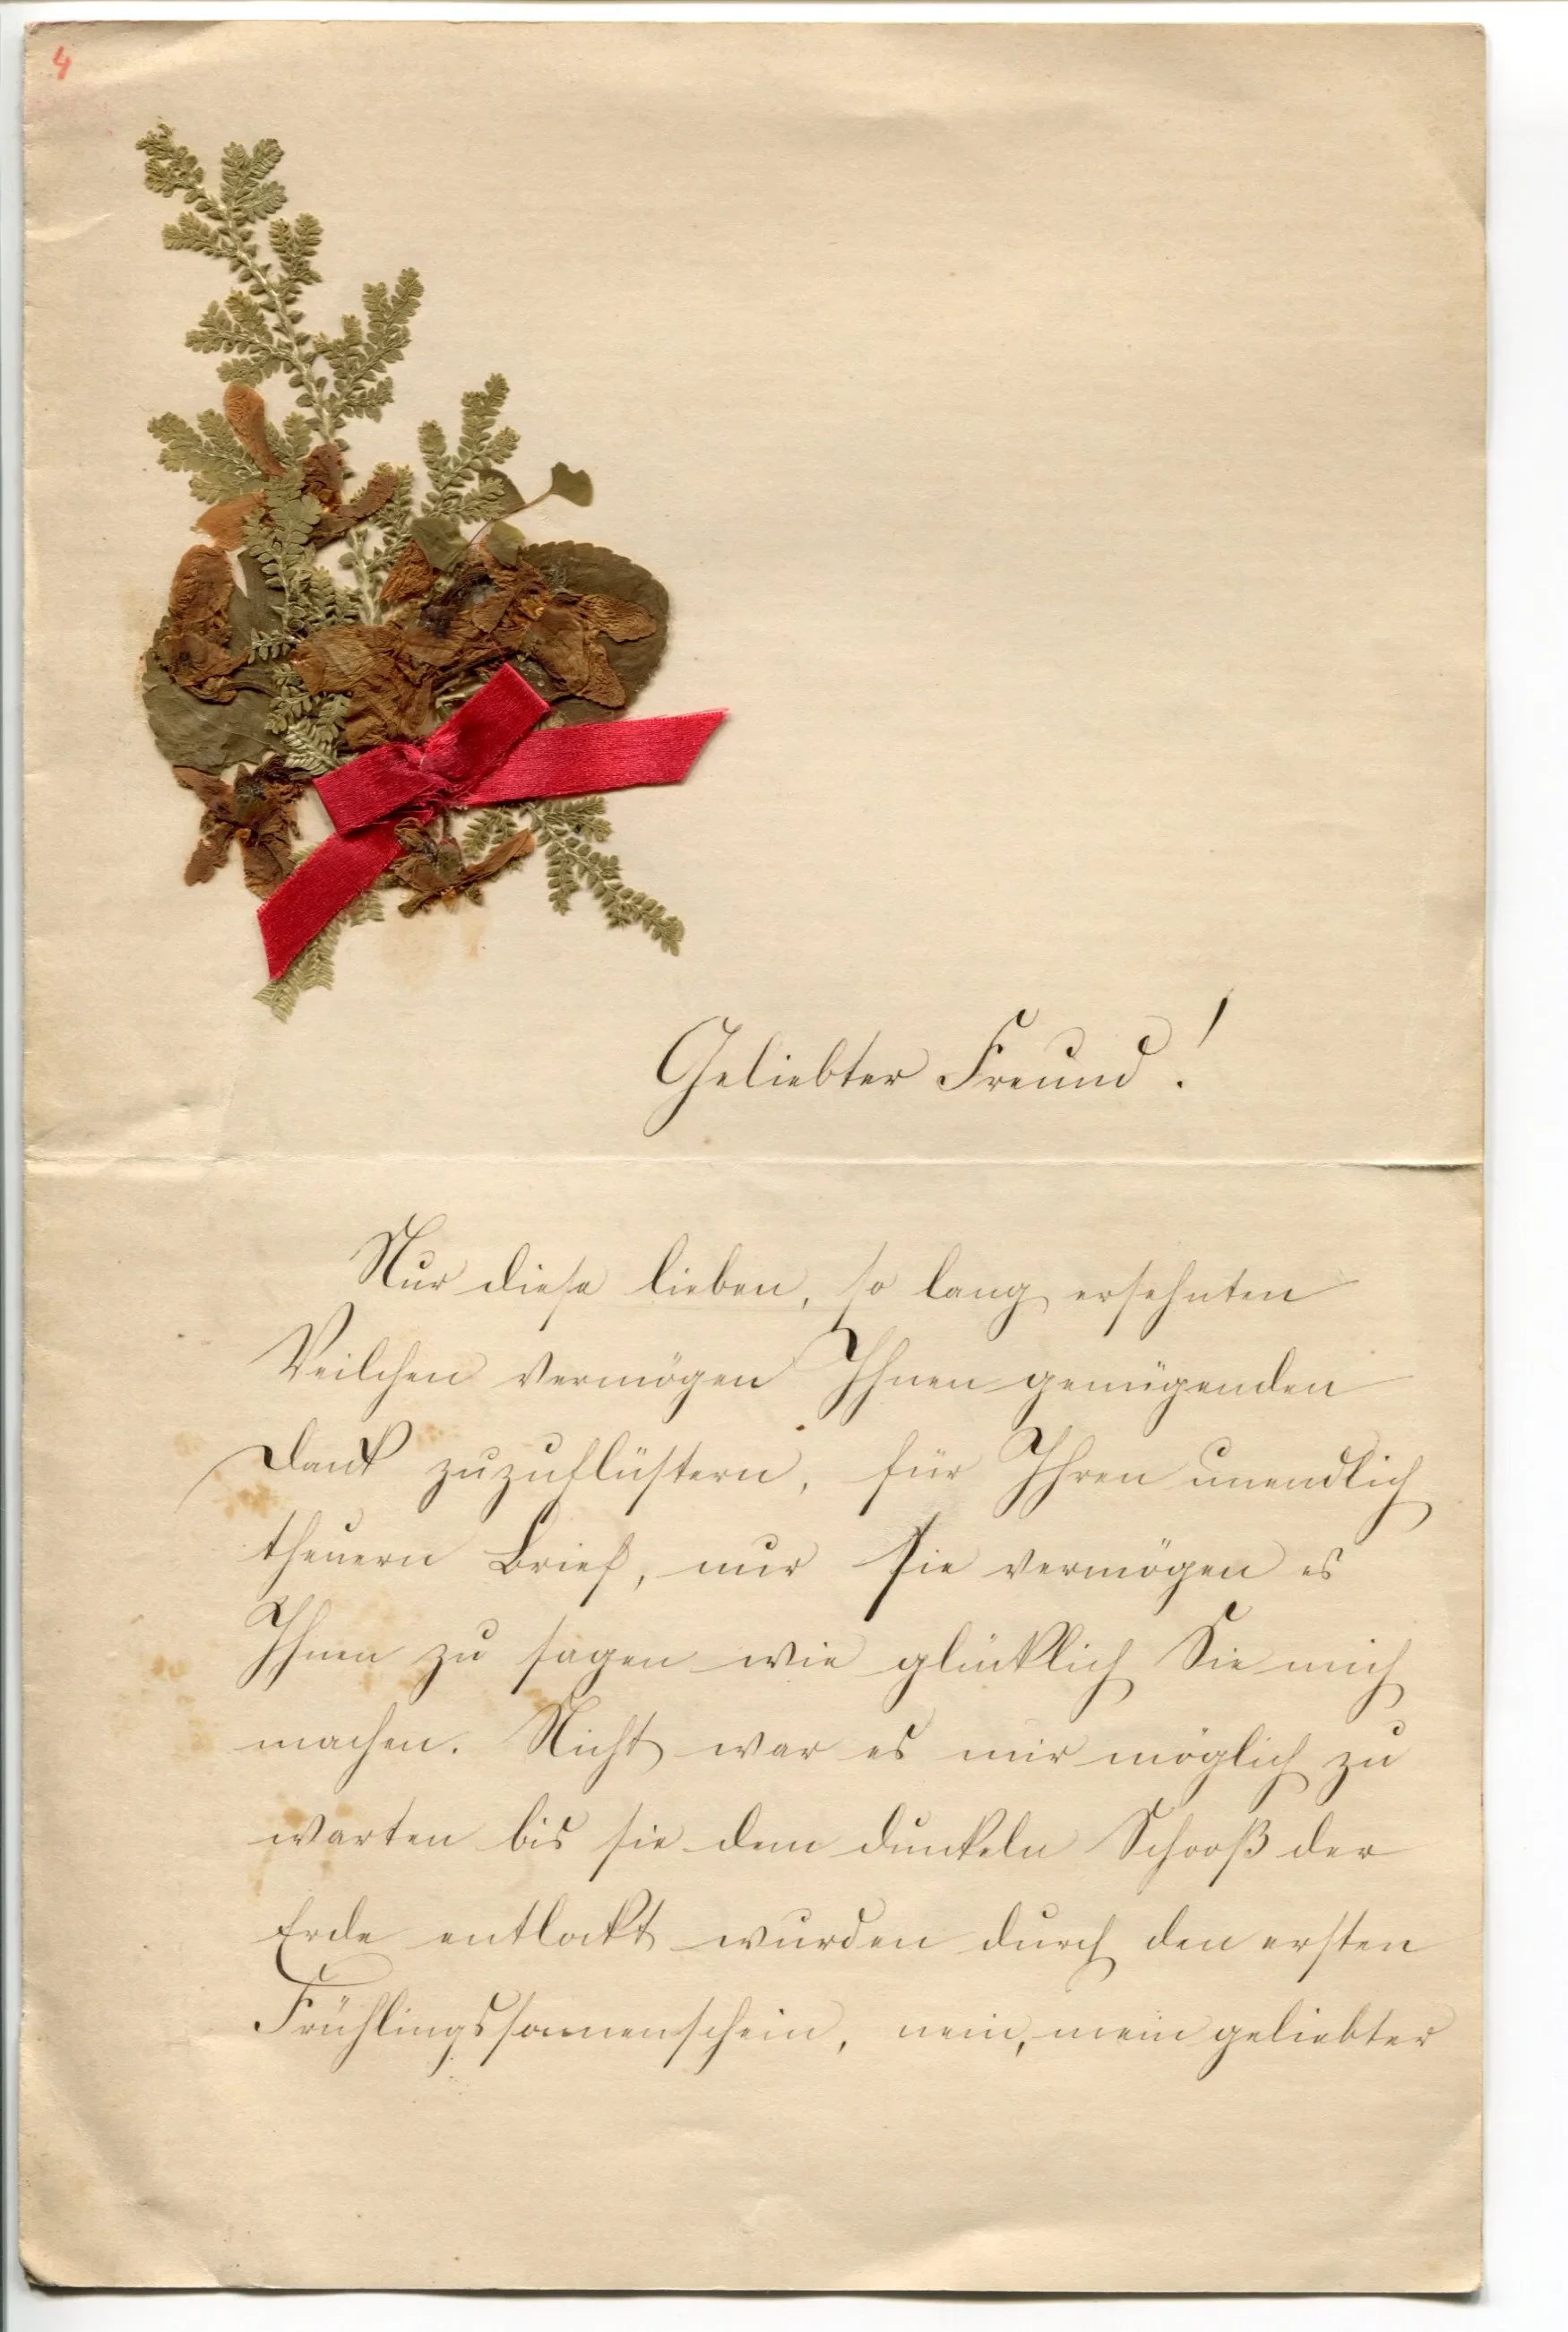 4
Geliebter Freund!
Nur diese lieben, so lang ersehnten
Veilchen vermögen Ihnen genügenden
Dank zuzuflüstern, für Ihren unendlich
theuern Brief, nur sie vermögen es
Ihnen zu sagen wie glücklich Sie mich
machen. Nicht war es mir möglich zu
warten bis sie dem dunkeln Schooß der
Erde entlockt wurden durch den ersten
Frühlingssonnenschein, nein, mein geliebter